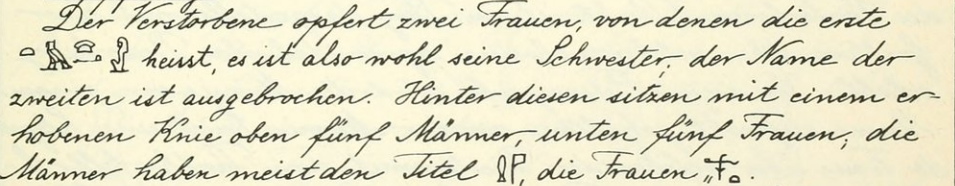 Der Verstorbene opfert zwei Frauen, von denen die erste
heisst, es ist also wohl seine Schwester, der Name der
zweiten ist ausgebrochen. Hinter diesen sitzen mit einem er-
hobenen Knie oben fünf Männer, unten fünf Frauen; die
Männer haben meist den Titel , die Frauen „ .